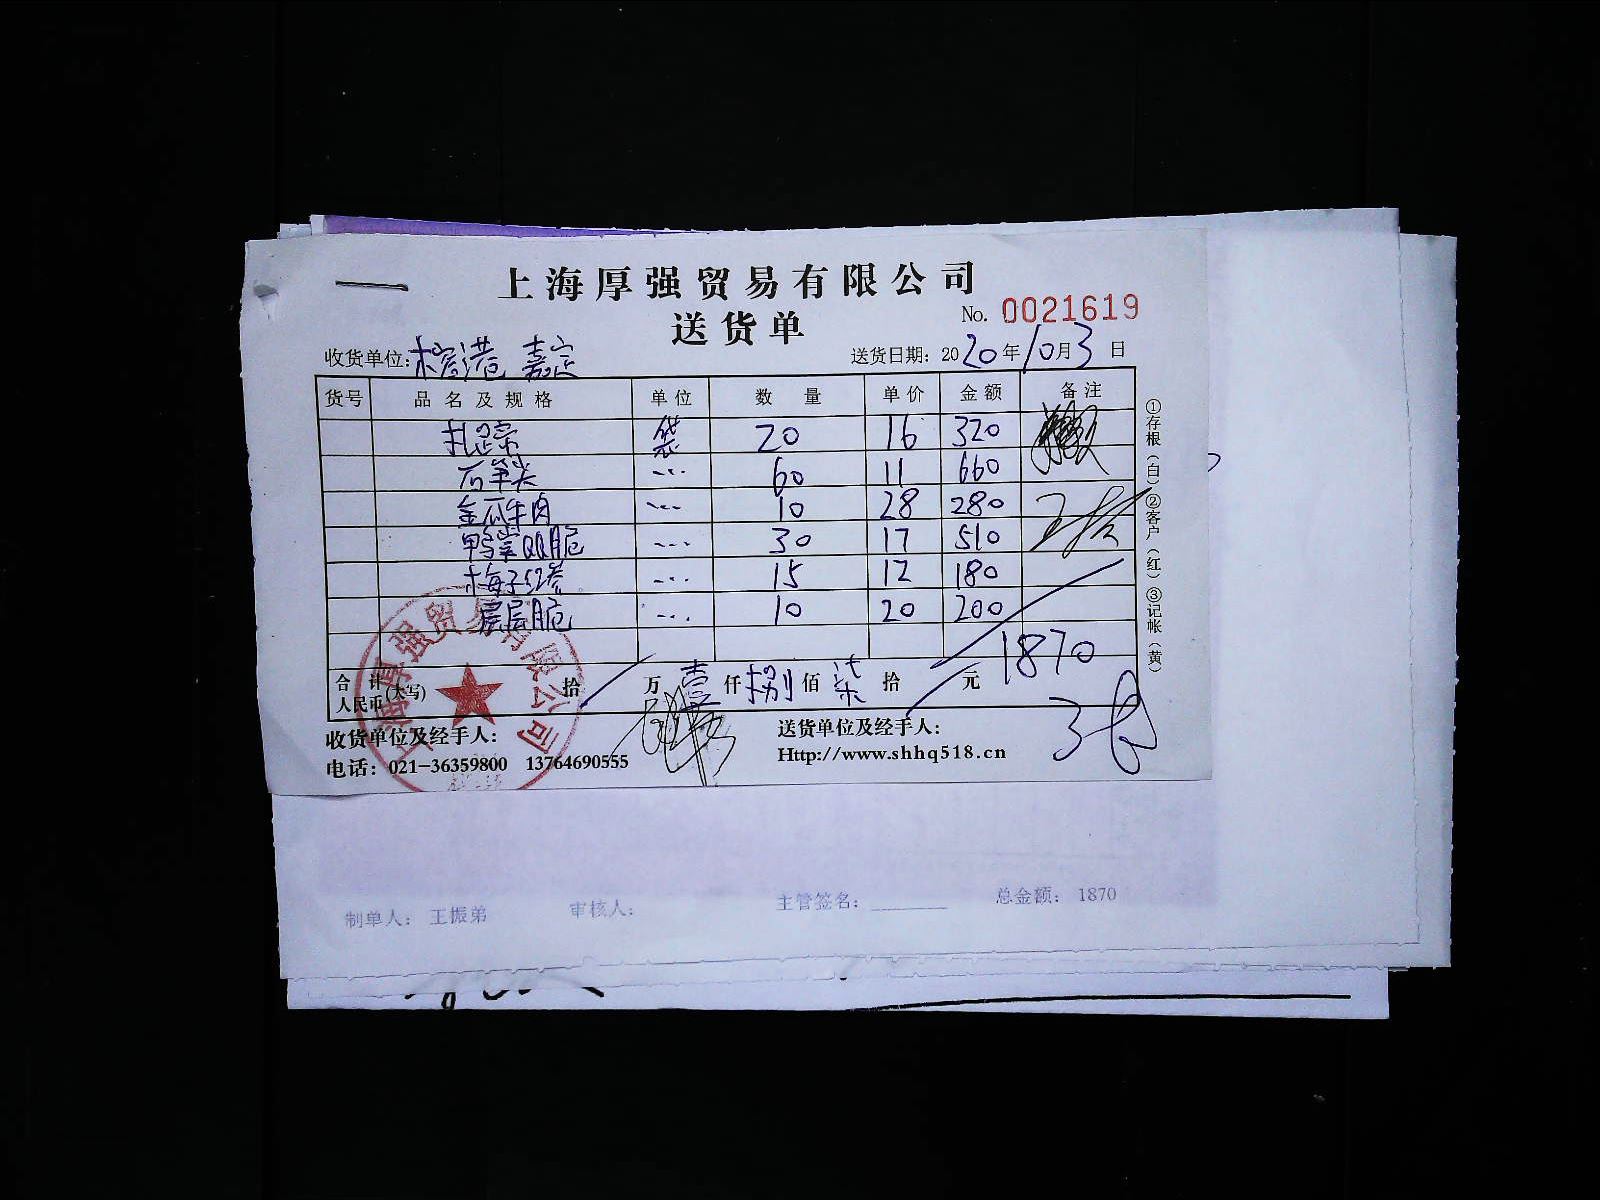 上海厚强贸易有限公司
送货单
No. 0021619
收货单位: 港 嘉定
送货日期: 2020年10月3日
货号 品名及规格 单位 数量 单价 金额 备注
袋 20 16 320
石笋尖 60 11 660
金瓜牛肉 10 28 280
鸭掌QQ脆 30 17 510
梅子 15 12 180
层层脆 10 20 200
合计人民币(大写) 拾 万 壹 仟 捌 佰 柒 拾 元 1870
收货单位及经手人:
送货单位及经手人:
电话: 021-36359800 13764690555
Http://www.shhq518.cn
①存根(白)②客户(红)③记帐(黄)
上海厚强贸易有限公司
制单人: 王振弟 审核人: 主管签名: 总金额: 1870